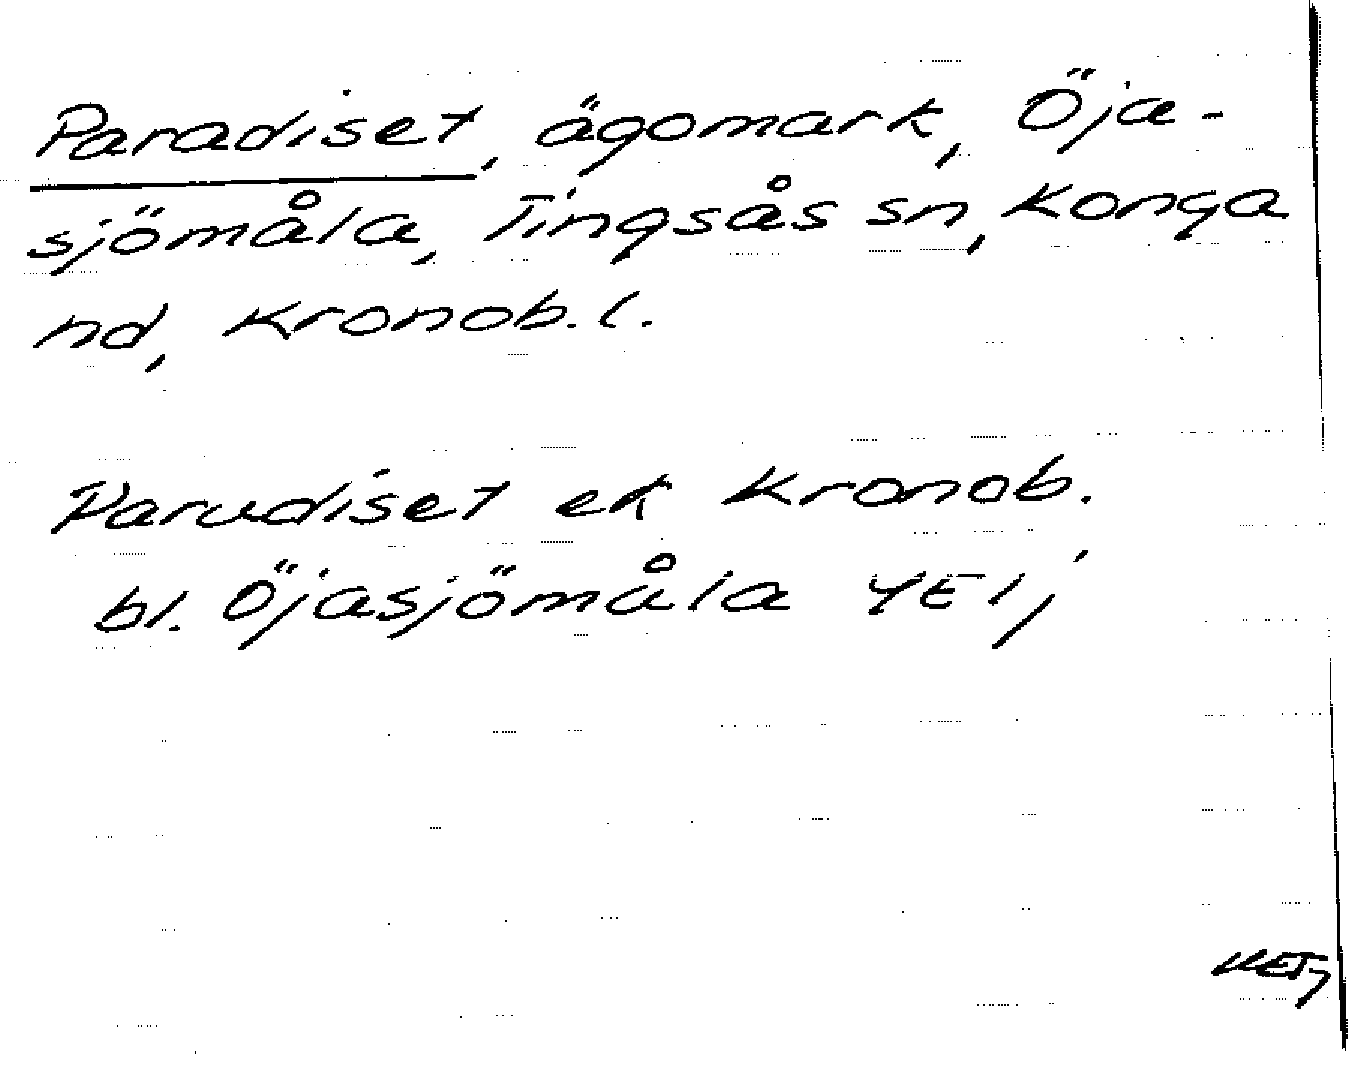 Paradiset, ägomark, Öja-
sjömåla, Tingsås sn, Konga
hd, Kronob. l.
Paradiset ek Kronob.
bl. Öjasjömåla 4E1j